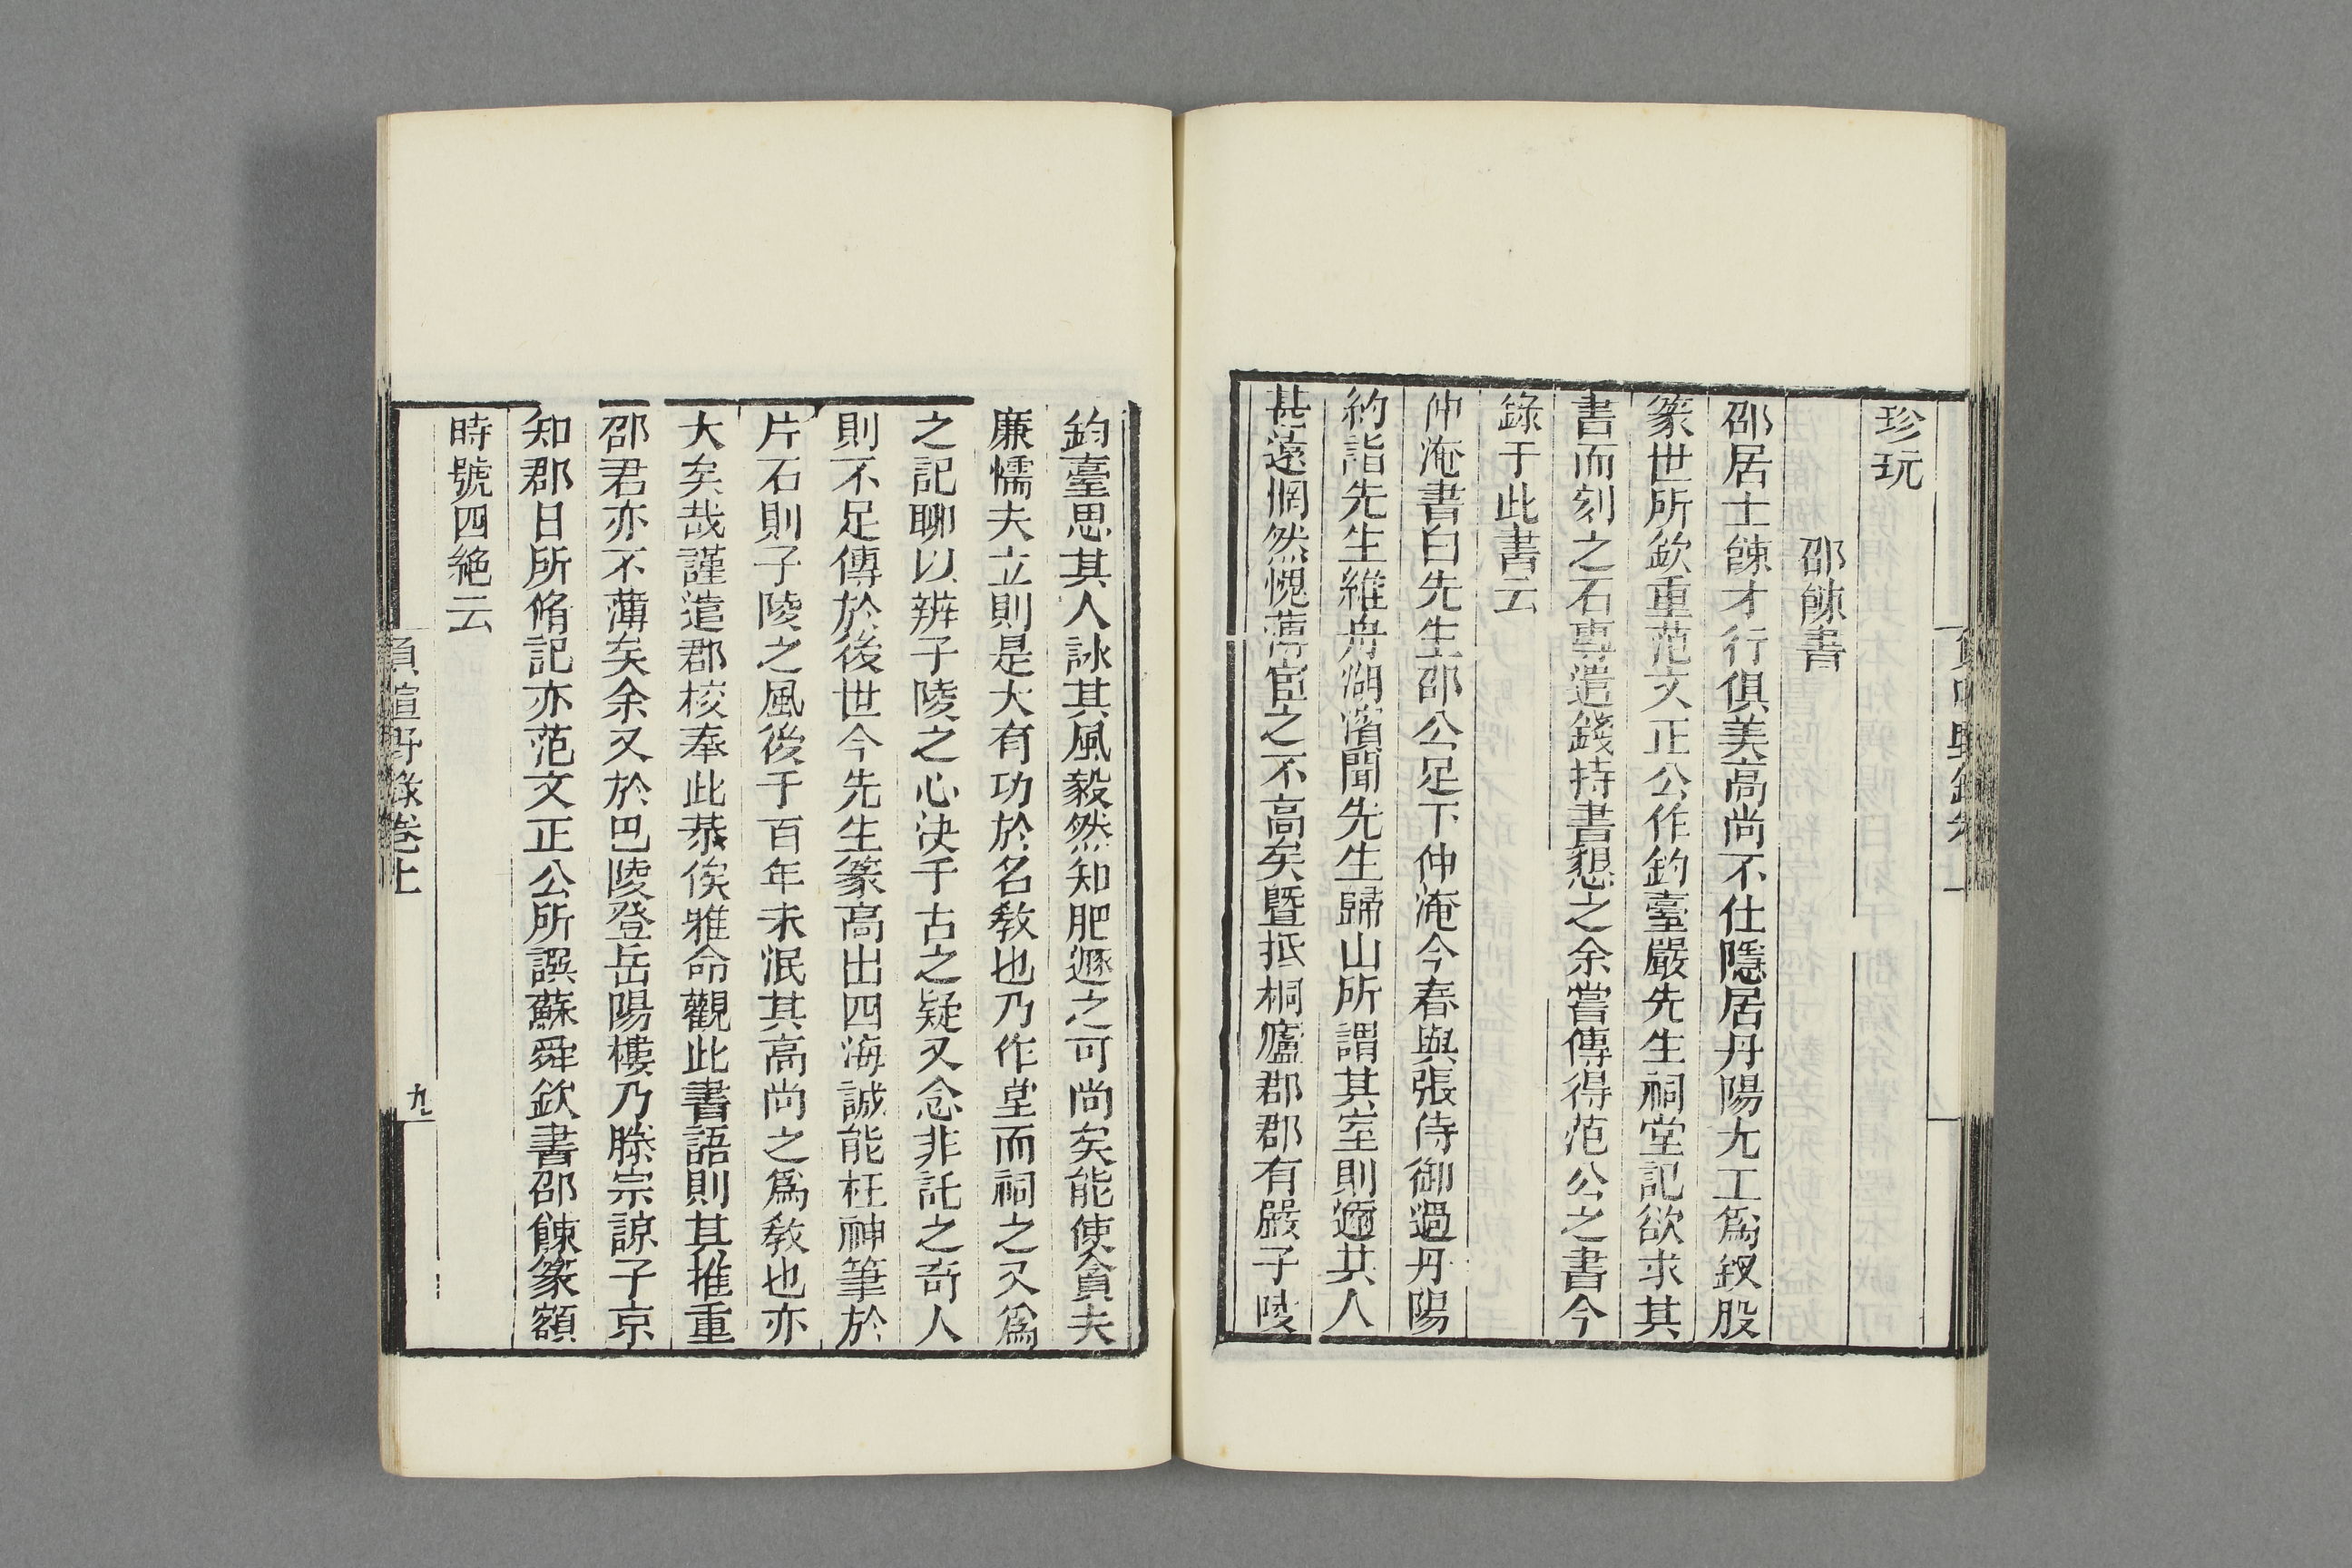 珍玩
邵餗書
邵居士餗才行俱美高尚不仕隱居丹陽尢工爲釵股
篆世所欽重范文正公作釣臺嚴先生祠堂記欲求其
書而刻之石專遣錢持書懇之余嘗傳得范公之書今
錄于此書云
仲淹書白先生邵公足下仲淹今春與張侍御過丹陽
約詣先生維舟湖濱聞先生歸山所謂其室則邇其人
甚遠惘然愧薄宦之不高矣曁抵桐廬郡郡有嚴子陵
釣臺思其人詠其風毅然知肥遯之可尚矣能使貪夫
廉懦夫立則是大有功於名敎也乃作堂而祠之又爲
之記聊以辨子陵之心决千古之疑又念非託之奇人
則不足傳於後世今先生篆高出四海誠能枉神筆於
片石則子陵之風後千百年未泯其高尚之爲敎也亦
大矣哉謹遣郡校奉此恭俟雅命觀此書語則其推重
邵君亦不薄矣余又於巴陵登岳陽樓乃滕宗諒子京
知郡日所脩記亦范文正公所譔蘇舜欽書邵餗篆額
時號四絶云
負暄野錄卷上
九